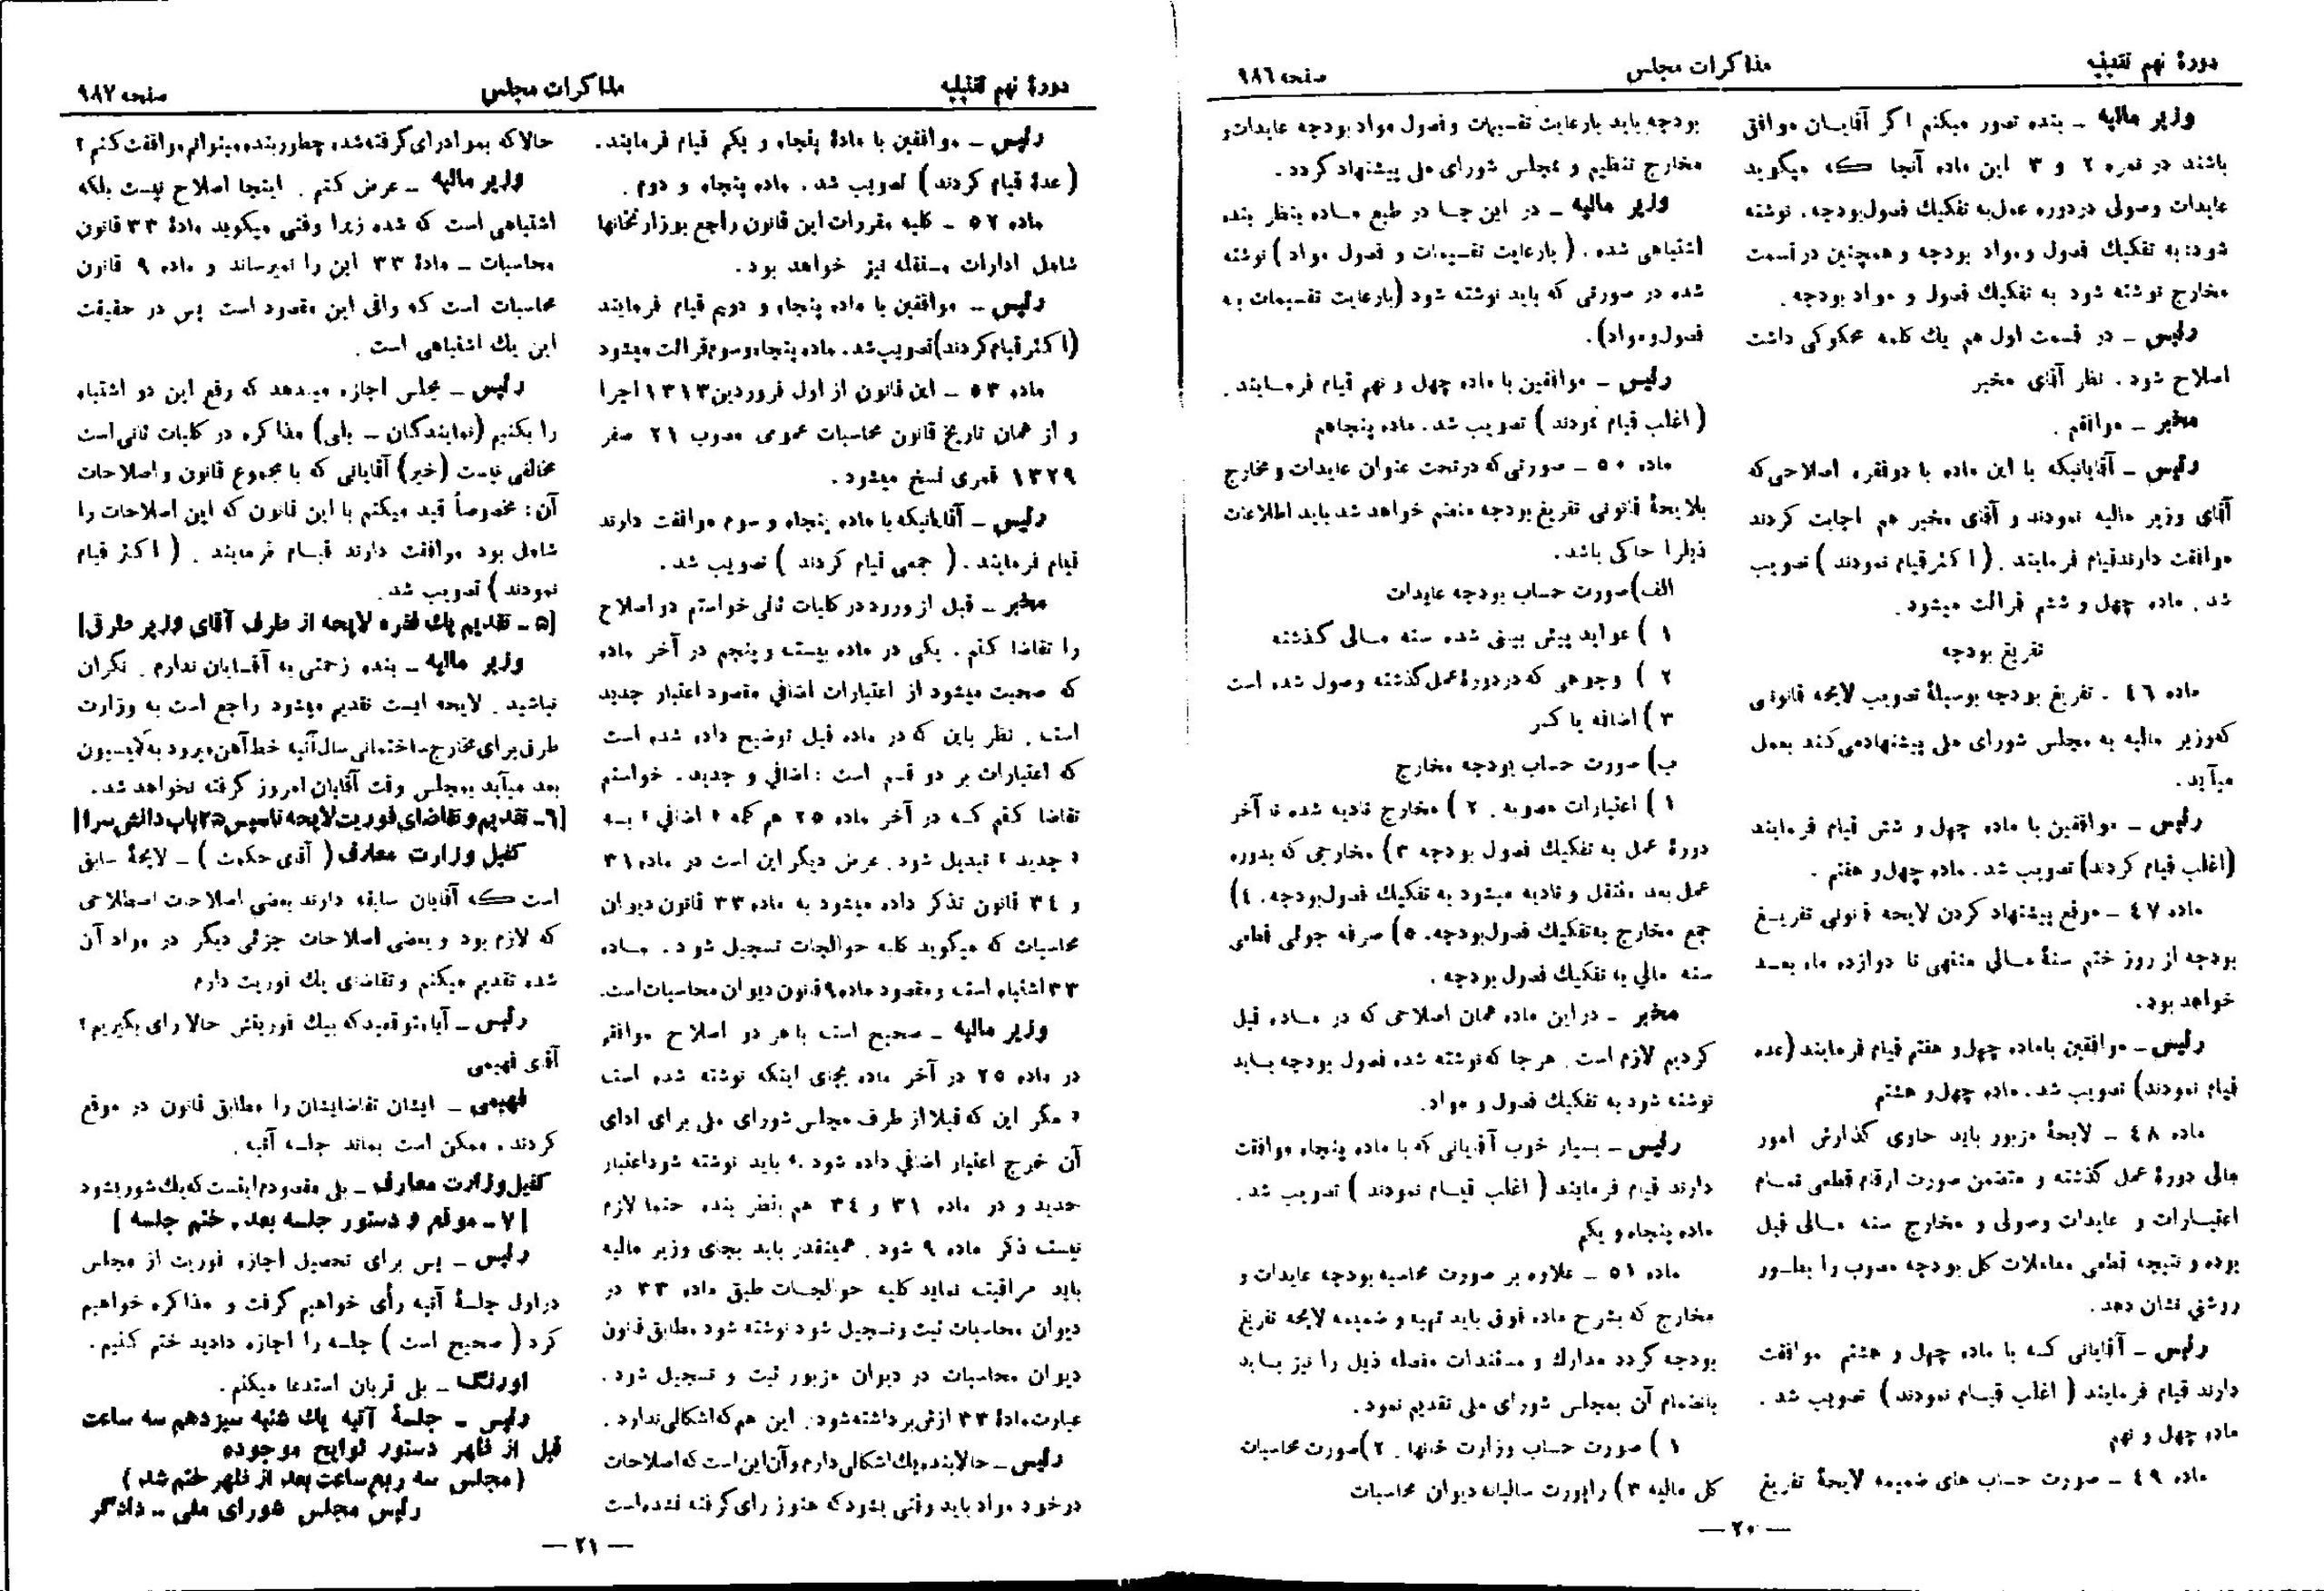 دورهٔ نهم تقنینیه
مذاکرات مجلس
صفحه ۹۸۶
وزیر مالیه ـ بنده تصور میکنم اگر آقایان موافق
باشند در نمره ۲ و ۳ این ماده آنجا که میگوید
عایدات وصولی در دوره عمل به تفکیك فصول بودجه. نوشته
شود: به تفکیك فصول و مواد بودجه و همچنین در قسمت
مخارج نوشته شود به تفکیك فصول و مواد بودجه.
رئیس ـ در قسمت اول هم یك کلمه محکوکی داشت
اصلاح شود. نظر آقای مخبر
مخبر ـ موافقم.
رئیس ـ آقایانیکه با این ماده با دو فقره اصلاحی که
آقای وزیر مالیه نمودند و آقای مخبر هم اجابت کردند
موافقت دارند قیام فرمایند. (اکثر قیام نمودند) تصویب
شد. ماده چهل و ششم قرائت میشود.
تفریغ بودجه
ماده ۴۶ ـ تفریغ بودجه بوسیلهٔ تصویب لایحه قانونی
که وزیر مالیه به مجلس شورای ملی پیشنهاد می کند بعمل
میآید.
رئیس ـ موافقین با ماده چهل و شش قیام فرمایند
(اغلب قیام کردند) تصویب شد. ماده چهل و هفتم.
ماده ۴۷ ـ موقع پیشنهاد کردن لایحه قانونی تفریغ
بودجه از روز ختم سنهٔ مالی منتهی تا دوازده ماه بعد
خواهد بود.
رئیس ـ موافقین باماده چهل و هفتم قیام فرمایند (عده
قیام نمودند) تصویب شد. ماده چهل و هشتم
ماده ۴۸ ـ لایحهٔ مزبور باید حاوی گذارش امور
مالی دورهٔ عمل گذشته و متضمن صورت ارقام قطعی تمام
اعتبارات و عایدات وصولی و مخارج سنه مالی قبل
بوده و نتیجه قطعی معاملات کل بودجه مصوب را بطور
روشنی نشان دهد.
رئیس ـ آقایانی که با ماده چهل و هشتم موافقت
دارند قیام فرمایند (اغلب قیام نمودند) تصویب شد.
ماده چهل و نهم
ماده ۴۹ ـ صورت حساب های ضمیمه لایحهٔ تفریغ
بودجه باید بارعایت تقسیمات و فصول مواد بودجه عایدات و
مخارج تنظیم و بمجلس شورای ملی پیشنهاد گردد.
وزیر مالیه ـ در این جا در طبع ماده بنظر بنده
اشتباهی شده. (بارعایت تقسیمات و فصول مواد) نوشته
شده در صورتی که باید نوشته شود (بارعایت تقسیمات به
فصول و مواد).
رئیس ـ موافقین با ماده چهل و نهم قیام فرمایند.
(اغلب قیام نمودند) تصویب شد. ماده پنجاهم
ماده ۵۰ ـ صورتی که در تحت عنوان عایدات و مخارج
بلایحهٔ قانونی تفریغ بودجه منضم خواهد شد باید اطلاعات
ذیل را حاکی باشد.
الف) صورت حساب بودجه عایدات
۱) عواید پیش بینی شده سنه مالی گذشته
۲) وجوهی که در دورهٔ عمل گذشته وصول شده است
۳) اضافه یا کسر
ب) صورت حساب بودجه مخارج
۱) اعتبارات مصوبه. ۲) مخارج تادیه شده تا آخر
دورهٔ عمل به تفکیك فصول بودجه ۳) مخارجی که بدوره
عمل بعد منتقل و تادیه میشود به تفکیك فصول بودجه. ۴)
جمع مخارج به تفکیك فصول بودجه. ۵) صرفه جوئی قطعی
سنه مالی به تفکیك فصول بودجه.
مخبر ـ در این ماده همان اصلاحی که در ماده قبل
کردیم لازم است. هر جا که نوشته شده فصول بودجه باید
نوشته شود به تفکیك فصول و مواد.
رئیس ـ بسیار خوب آقایانی که با ماده پنجاه موافقت
دارند قیام فرمایند (اغلب قیام نمودند) تصویب شد.
ماده پنجاه و یکم
ماده ۵۱ ـ علاوه بر صورت محاسبه بودجه عایدات و
مخارج که بشرح ماده فوق باید تهیه و ضمیمه لایحه تفریغ
بودجه گردد مدارك و مستندات مفصله ذیل را نیز باید
بانضمام آن بمجلس شورای ملی تقدیم نمود.
۱) صورت حساب وزارت خانها. ۲) صورت محاسبات
کل مالیه ۳) راپورت سالیانه دیوان محاسبات
— ۲۰ —
دورهٔ نهم تقنینیه
مذاکرات مجلس
صفحه ۹۸۷
رئیس ـ موافقین با مادهٔ پنجاه و یکم قیام فرمایند.
(عدهٔ قیام کردند) تصویب شد. ماده پنجاه و دوم.
ماده ۵۲ ـ کلیه مقررات این قانون راجع بوزارتخانها
شامل ادارات مستقله نیز خواهد بود.
رئیس ـ موافقین با ماده پنجاه و دویم قیام فرمایند
(اکثر قیام کردند) تصویب شد. ماده پنجاه و سوم قرائت میشود
ماده ۵۳ ـ این قانون از اول فروردین ۱۳۱۳ اجرا
و از همان تاریخ قانون محاسبات عمومی مصوب ۲۱ صفر
۱۳۲۹ قمری نسخ میشود.
رئیس ـ آقایانیکه با ماده پنجاه و سوم موافقت دارند
قیام فرمایند. (جمعی قیام کردند) تصویب شد.
مخبر ـ قبل از ورود در کلیات ثانی خواستم دو اصلاح
را تقاضا کنم. یکی در ماده بیست و پنجم در آخر ماده
که صحبت میشود از اعتبارات اضافی مقصود اعتبار جدید
است. نظر باین که در ماده قبل توضیح داده شده است
که اعتبارات بر دو قسم است: اضافی و جدید. خواستم
تقاضا کنم که در آخر ماده ۲۵ هم کلمه «اضافی» به
«جدید» تبدیل شود. عرض دیگر این است در ماده ۳۱
و ۳۴ قانون تذکر داده میشود به ماده ۳۳ قانون دیوان
محاسبات که میگوید کلیه حوالجات تسجیل شود. ماده
۳۳ اشتباه است و مقصود ماده ۹ قانون دیوان محاسبات است.
وزیر مالیه ـ صحیح است با هر دو اصلاح موافقم
در ماده ۲۵ در آخر ماده بجای اینکه نوشته شده است
«مگر این که قبلا از طرف مجلس شورای ملی برای ادای
آن خرج اعتبار اضافی داده شود.» باید نوشته شود اعتبار
جدید و در ماده ۳۱ و ۳۴ هم بنظر بنده حتما لازم
نیست ذکر ماده ۹ شود. همینقدر باید بجای وزیر مالیه
باید مراقبت نماید کلیه حوالجات طبق ماده ۳۳ در
دیوان محاسبات ثبت و تسجیل شود نوشته شود مطابق قانون
دیوان محاسبات در دیوان مزبور ثبت و تسجیل شود.
عبارت مادهٔ ۳۳ ازش برداشته شود. این هم که اشکالی ندارد.
رئیس ـ حالا بنده یك اشکالی دارم و آن این است که اصلاحات
در خود مواد باید وقتی بشود که هنوز رای گرفته نشده است
حالا که بمواد رای گرفته شده چطور بنده میتوانم موافقت کنم؟
وزیر مالیه ـ عرض کنم. اینجا اصلاح نیست بلکه
اشتباهی است که شده زیرا وقتی میگوید مادهٔ ۳۳ قانون
محاسبات ـ مادهٔ ۳۳ این را نمیرساند و ماده ۹ قانون
محاسبات است که وافی این مقصود است پس در حقیقت
این یك اشتباهی است.
رئیس ـ مجلس اجازه میدهد که رفع این دو اشتباه
را بکنیم (نمایندگان ـ بلی) مذاکره در کلیات ثانی است
مخالفی نیست (خیر) آقایانی که با مجموع قانون و اصلاحات
آن: مخصوصاً قید میکنم با این قانون که این اصلاحات را
شامل بود موافقت دارند قیام فرمایند. (اکثر قیام
نمودند) تصویب شد.
[۵ ـ تقدیم یك فقره لایحه از طرف آقای وزیر طرق]
وزیر مالیه ـ بنده زحمتی به آقایان ندارم. نگران
نباشید. لایحه ایست تقدیم میشود راجع است به وزارت
طرق برای مخارج ساختمانی سال آتیه خط آهن میرود به کمیسیون
بعد میآید بمجلس وقت آقایان امروز گرفته نخواهد شد.
[۶ ـ تقدیم و تقاضای فوریت لایحه تاسیس ۲۵ باب دانش سرا]
کفیل وزارت معارف (آقای حکمت) ـ لایحهٔ سابق
است که آقایان سابقه دارند بعضی اصلاحات اصطلاحی
که لازم بود و بعضی اصلاحات جزئی دیگر در مواد آن
شده تقدیم میکنم و تقاضای یك فوریت دارم
رئیس ـ آیا متوقعید که بیك فوریتش حالا رای بگیریم؟
آقای فهیمی
فهیمی ـ ایشان تقاضایشان را مطابق قانون در موقع
کردند. ممکن است بماند جلسه آتیه.
کفیل وزارت معارف ـ بلی مقصودم اینست که یك شور بشود
[۷ ـ موقع و دستور جلسه بعد. ختم جلسه]
رئیس ـ پس برای تحصیل اجازه فوریت از مجلس
در اول جلسهٔ آتیه رأی خواهیم گرفت و مذاکره خواهیم
کرد (صحیح است) جلسه را اجازه دادید ختم کنیم.
اورنگ ـ بلی قربان استدعا میکنم.
رئیس ـ جلسهٔ آتیه یك شنبه سیزدهم سه ساعت
قبل از ظهر دستور لوایح موجوده
(مجلس سه ربع ساعت بعد از ظهر ختم شد)
رئیس مجلس شورای ملی ـ دادگر
— ۲۱ —